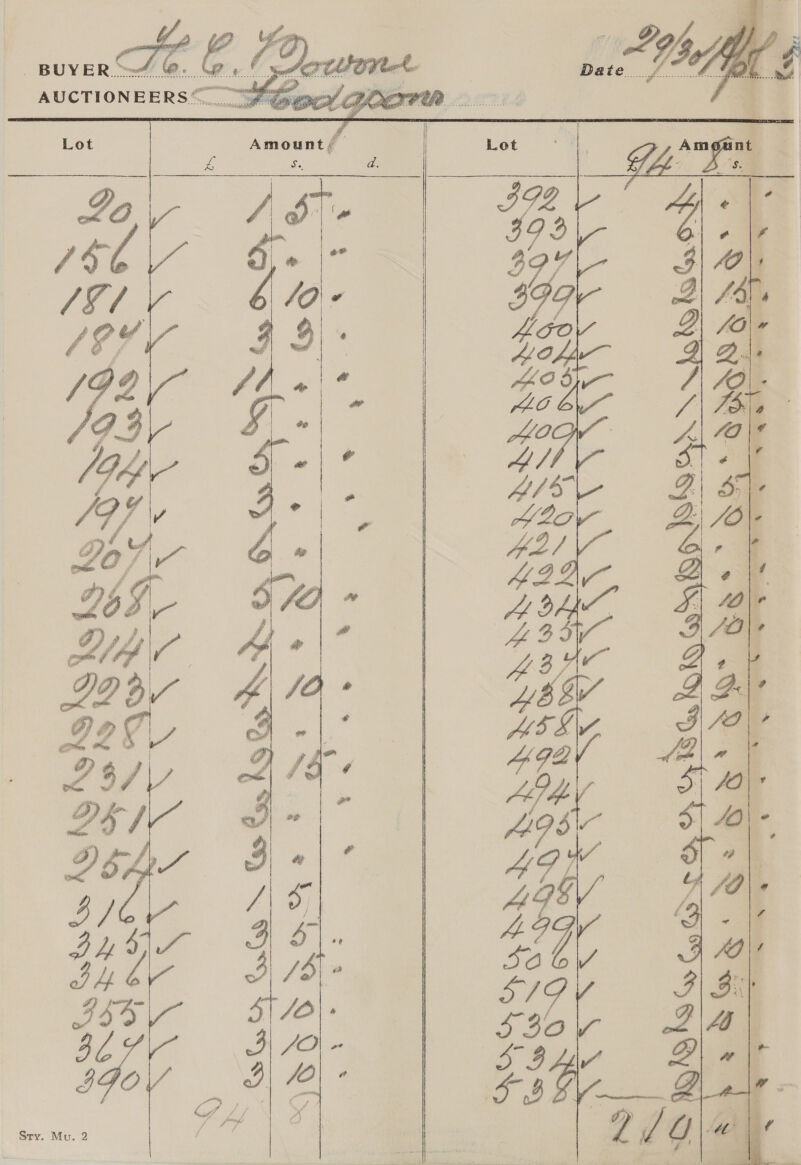 BUYER H. C. Downe Date 29/30/Apl 3
AUCTIONEERS Hodgsons
Lot Amount
£ s. d.
20 1 5 "
156 5 " "
181 6 10 "
187 3 3 "
192 11 " "
193 8 " "
194 5 " "
197 3 " "
207 6 " "
208 5 10 "
214 4 " "
223 4 10 "
228 3 " "
231 2 15 "
251 3 " "
254 3 " "
316 1 5
345 3 5 "
346 3 15 "
355 5 10 "
367 3 10 "
390 3 10 "
94 8
Lot Amount
94 8 s.
392 4 " "
393 6 " "
397 3 10 "
399 2 15 "
400 2 10 "
404 2 2 "
405 1 10 "
406 1 15 "
409 10 "
411 5 " "
415 2 5 "
420 2 10 "
421 6 " "
422 2 " "
434 10 "
435 3 10 "
437 2 " "
438 2 2 "
458 3 10 "
492 12 " "
494 5 10 "
495 5 10 "
497 5 "
498 7 10 "
499 3 " "
506 3 10 "
519 3 3 "
530 2 10
534 2 " "
538 2 " "
219 " "
Sty. Mu. 2